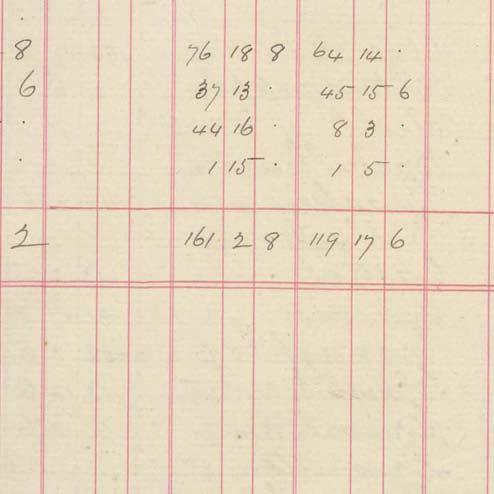 8 76 18 8 64 14 .
6 37 13 . 45 15 6
. 44 16 . 8 3 .
. 1 15 . 1 5 .
2 161 2 8 119 17 6